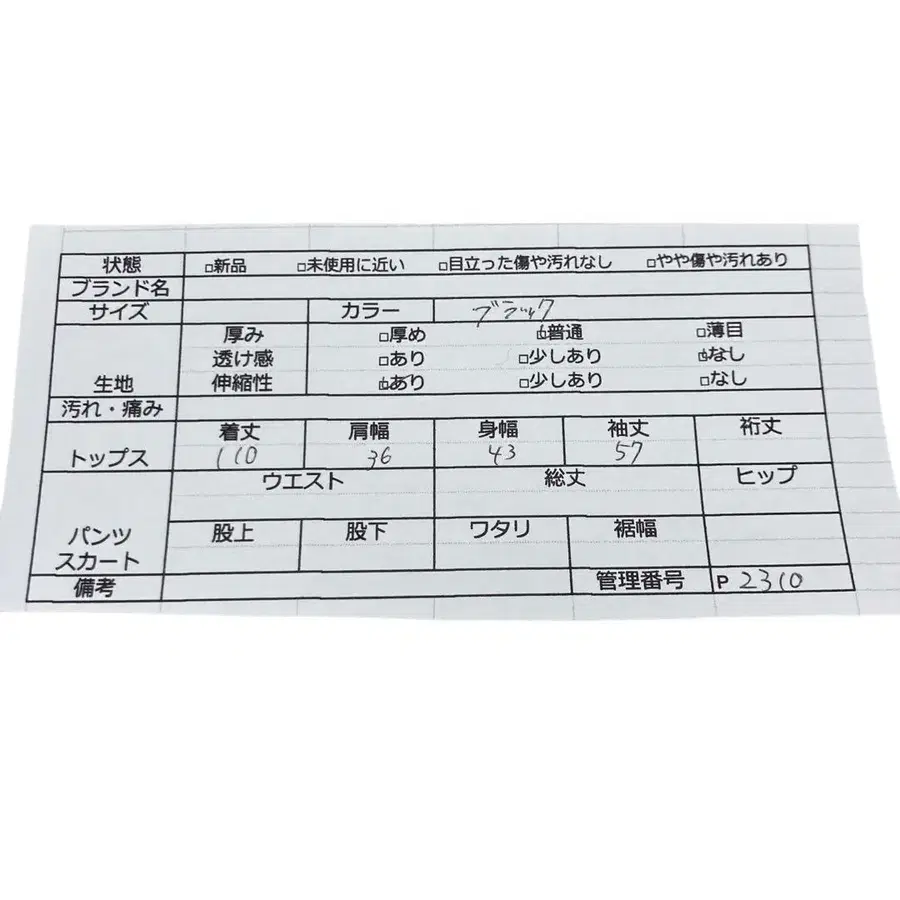 状態 □新品 □未使用に近い □目立った傷や汚れなし □やや傷や汚れあり
ブランド名
サイズ カラー ブラック
厚み □厚め ☑普通 □薄目
透け感 □あり □少しあり ☑なし
生地 伸縮性 ☑あり □少しあり □なし
汚れ・痛み
着丈 肩幅 身幅 袖丈 裄丈
トップス 110 36 43 57
ウエスト 総丈 ヒップ
パンツ 股上 股下 ワタリ 裾幅
スカート
備考 管理番号 P 2310